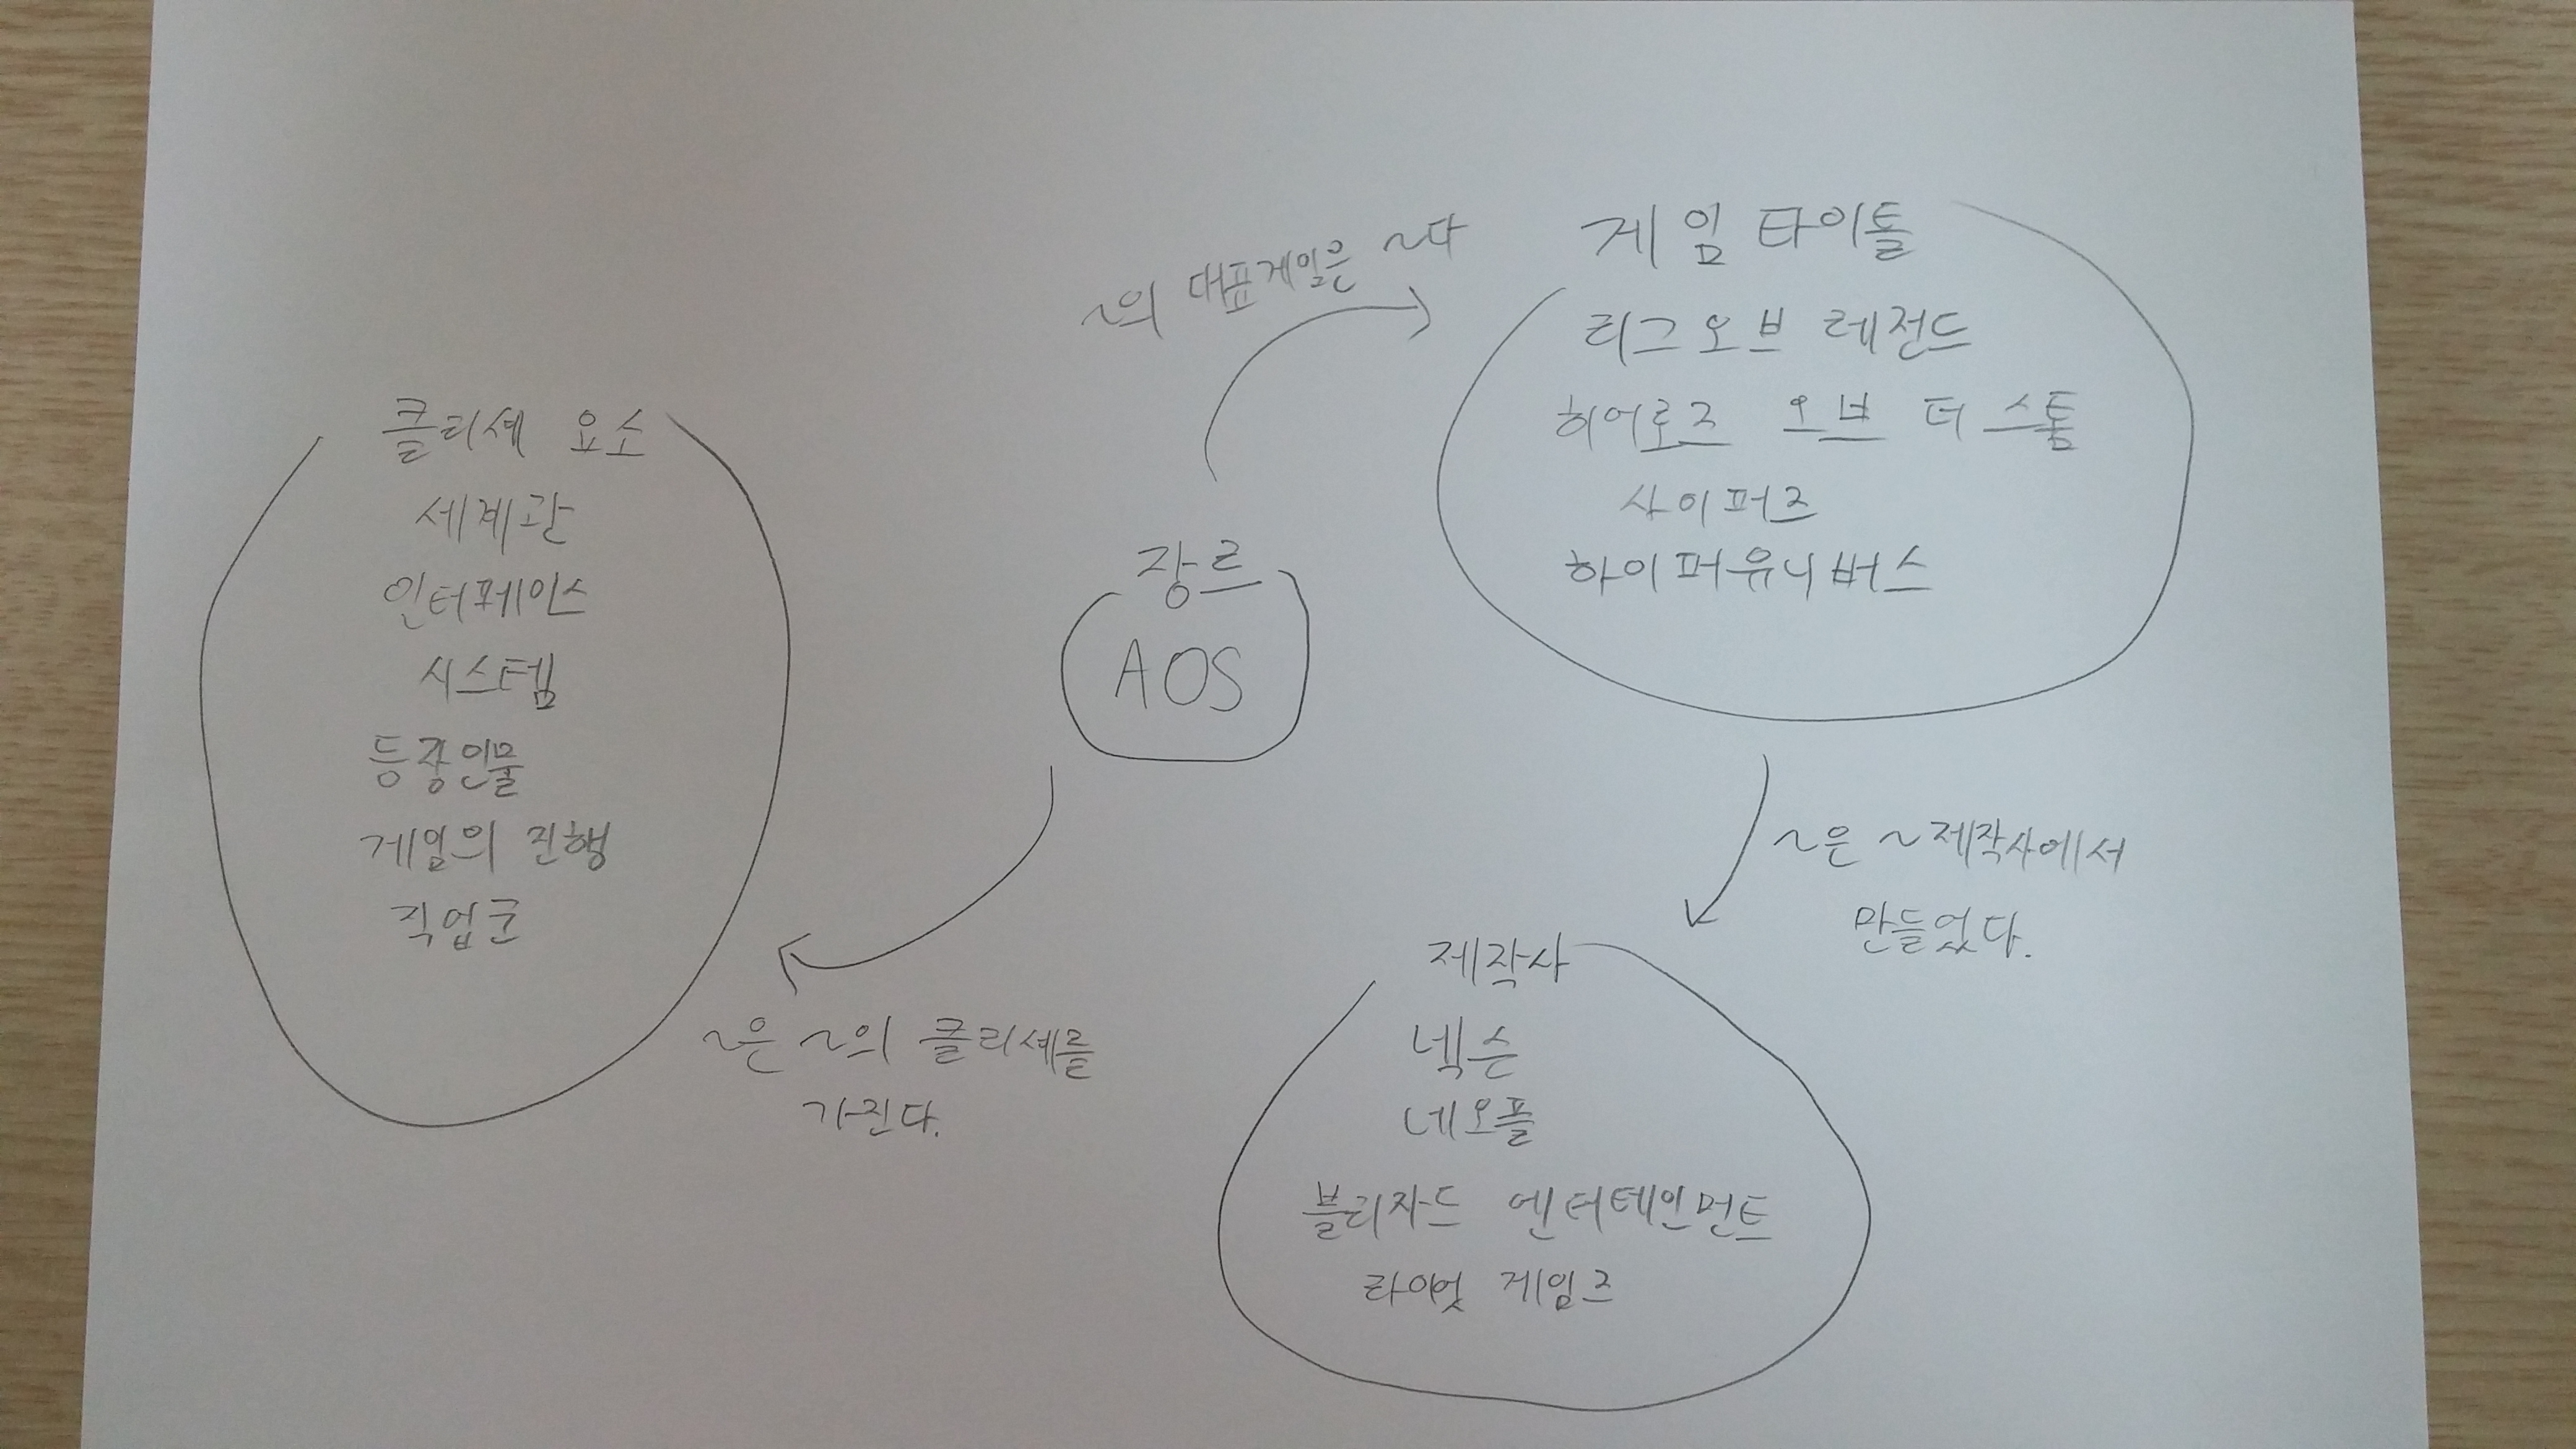 ~의 대표게임은 ~다
게임 타이틀
리그오브 레전드
히어로즈 오브 더 스톰
사이퍼즈
하이퍼유니버스
클리셰 요소
세계관
인터페이스
시스템
등장인물
게임의 진행
직업군
장르
AOS
~은 ~의 클리셰를
가진다.
~은 ~제작사에서
만들었다.
제작사
넥슨
네오플
블리자드 엔터테인먼트
라이엇 게임즈